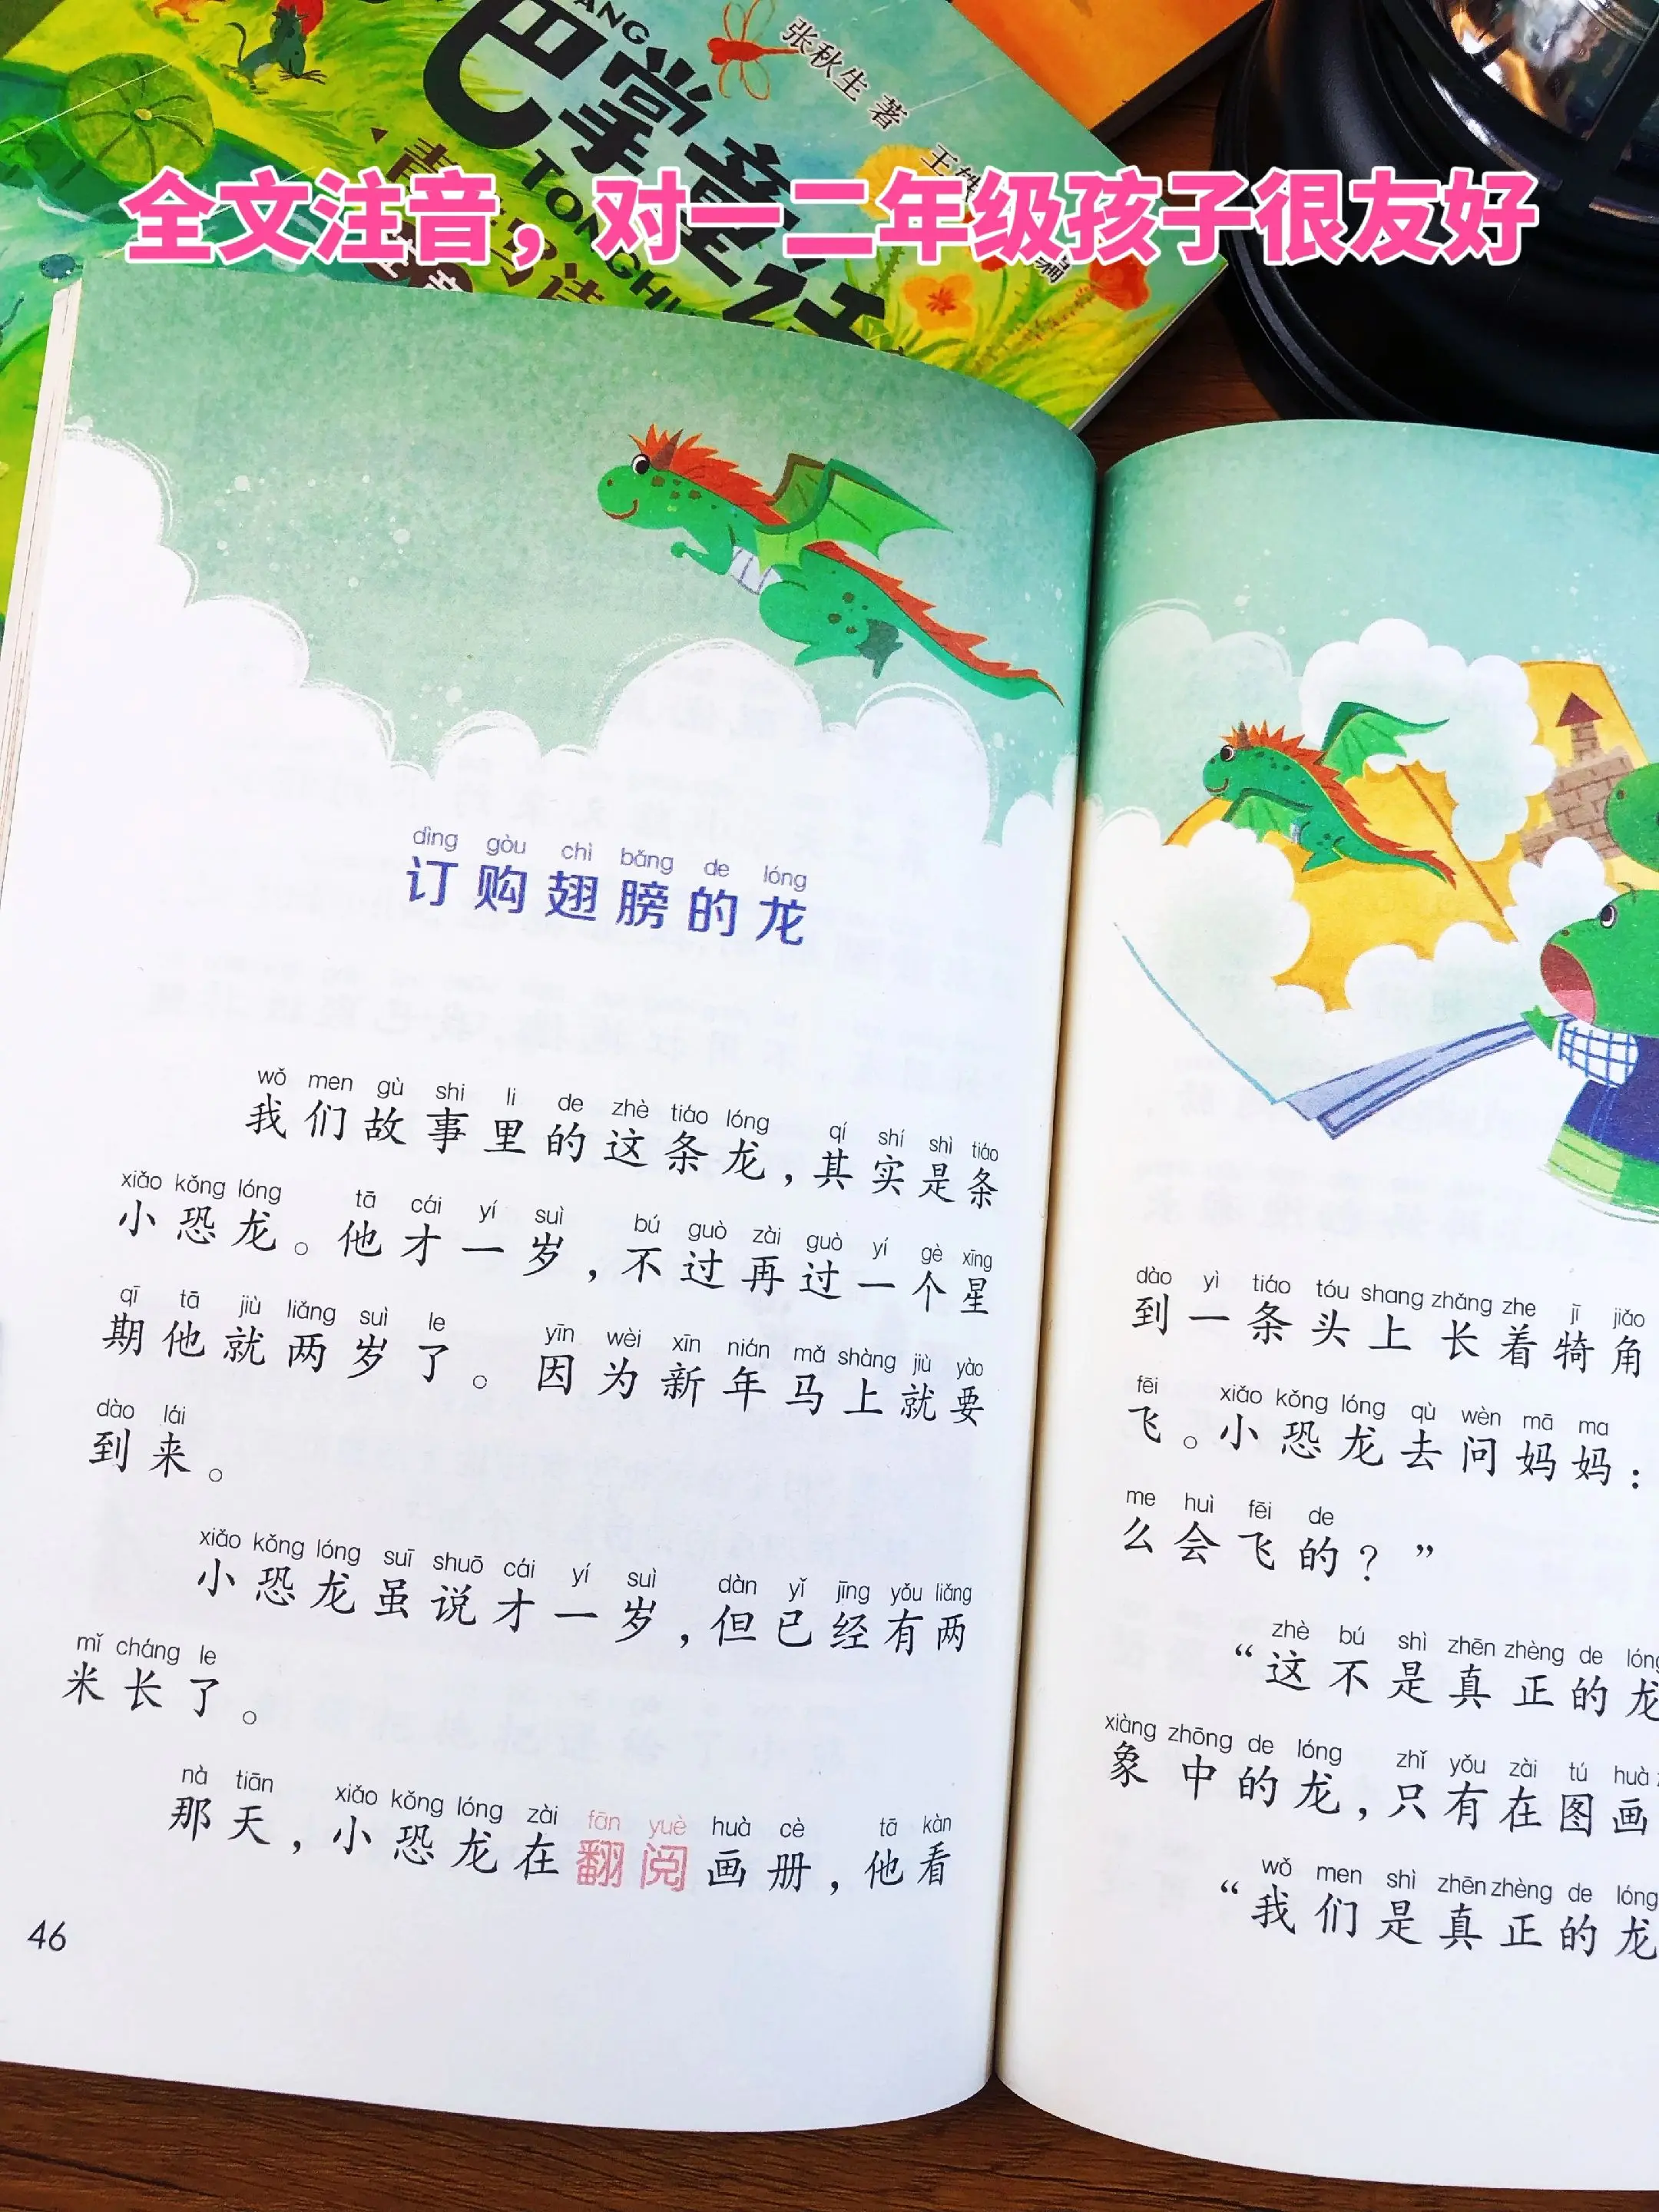 张秋生 著
巴掌童话
TONGHUA
全文注音，对一二年级孩子很友好
dìng gòu chì bǎng de lóng
订购翅膀的龙
wǒ men gù shi li de zhè tiáo lóng qí shí shì tiáo
我们故事里的这条龙，其实是条
xiǎo kǒng lóng tā cái yí suì bú guò zài guò yí gè xīng
小恐龙。他才一岁，不过再过一个星
qī tā jiù liǎng suì le yīn wèi xīn nián mǎ shàng jiù yào
期他就两岁了。因为新年马上就要
dào lái
到来。
xiǎo kǒng lóng suī shuō cái yí suì dàn yǐ jīng yǒu liǎng
小恐龙虽说才一岁，但已经有两
mǐ cháng le
米长了。
nà tiān xiǎo kǒng lóng zài fān yuè huà cè tā kàn
那天，小恐龙在翻阅画册，他看
46
dào yì tiáo tóu shang zhǎng zhe jī jiǎo
到一条头上长着犄角
fēi xiǎo kǒng lóng qù wèn mā ma
飞。小恐龙去问妈妈：
me huì fēi de
么会飞的？”
zhè bú shì zhēn zhèng de lóng
“这不是真正的龙
xiàng zhōng de lóng zhǐ yǒu zài tú huà
象中的龙，只有在图画
wǒ men shì zhēn zhèng de lóng
“我们是真正的龙